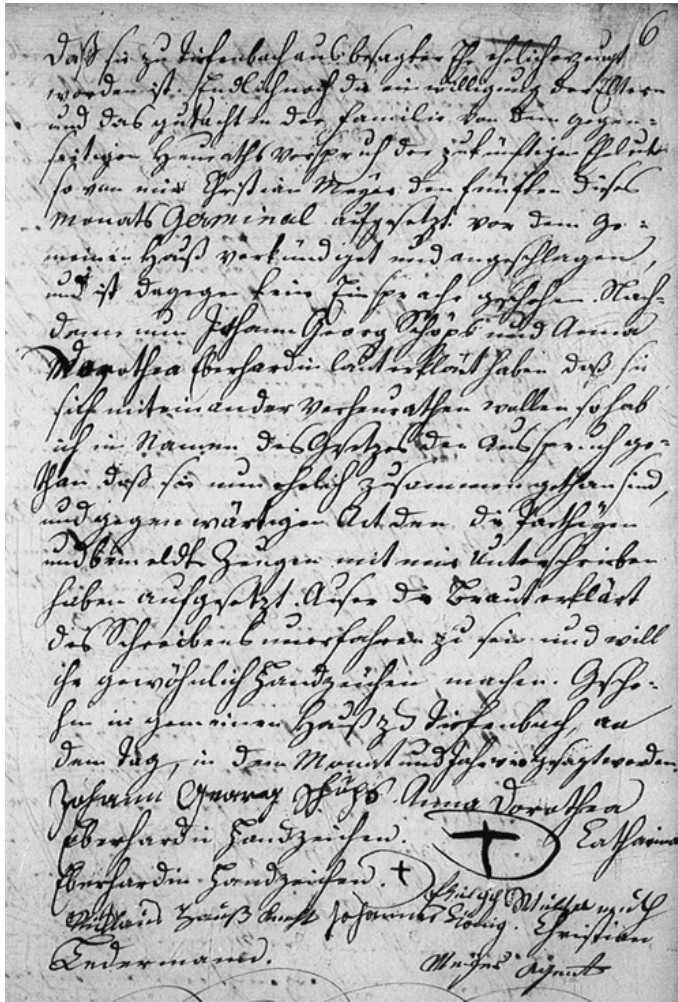 6
daß sie zu Tiefenbach aus besagter Ehe ehelich erzeugt
worden ist. Endlich noch die einwilligung der Eltern
und das gutachten der Familie von dem gegen-
seitigen Heuraths Verspruch der zukünftigen Eheleute
so von mir Christian Meyer den fünften dieses
monats Germinal aufgesetzt vor dem Ge-
meinen Hauß verkündiget und angeschlagen,
und ist dagegen keine Einsprache geschehen. Nach-
deme nun Johann Georg Schöps und Anna
Dorothea Eberhardin laut erklärt haben daß sie
sich miteinander verheurathen wollen so hab
ich in Namen des Gesetzes den Ausspruch ge-
than daß sie nun ehelich zusammen gethan sind,
und gegenwärtigen Act den die Partheyen
und bemeldte Zeugen mit mir unterschrieben
haben aufgesetzt. Auser die Braut erklärt
des Schreibens unerfahren zu sein und will
ihr gewöhnlich Handzeichen machen. Gesche-
hen in gemeinen Hauß zu Tiefenbach, an
dem Tag, in dem Monat und Jahr wie gesagt worden.
Johann Georg Schöps Anna Dorothea
Eberhardin Handzeichen. Catharina
Eberhardin Handzeichen.
Johannes König. Christian
Ledermann. Meyer Agent